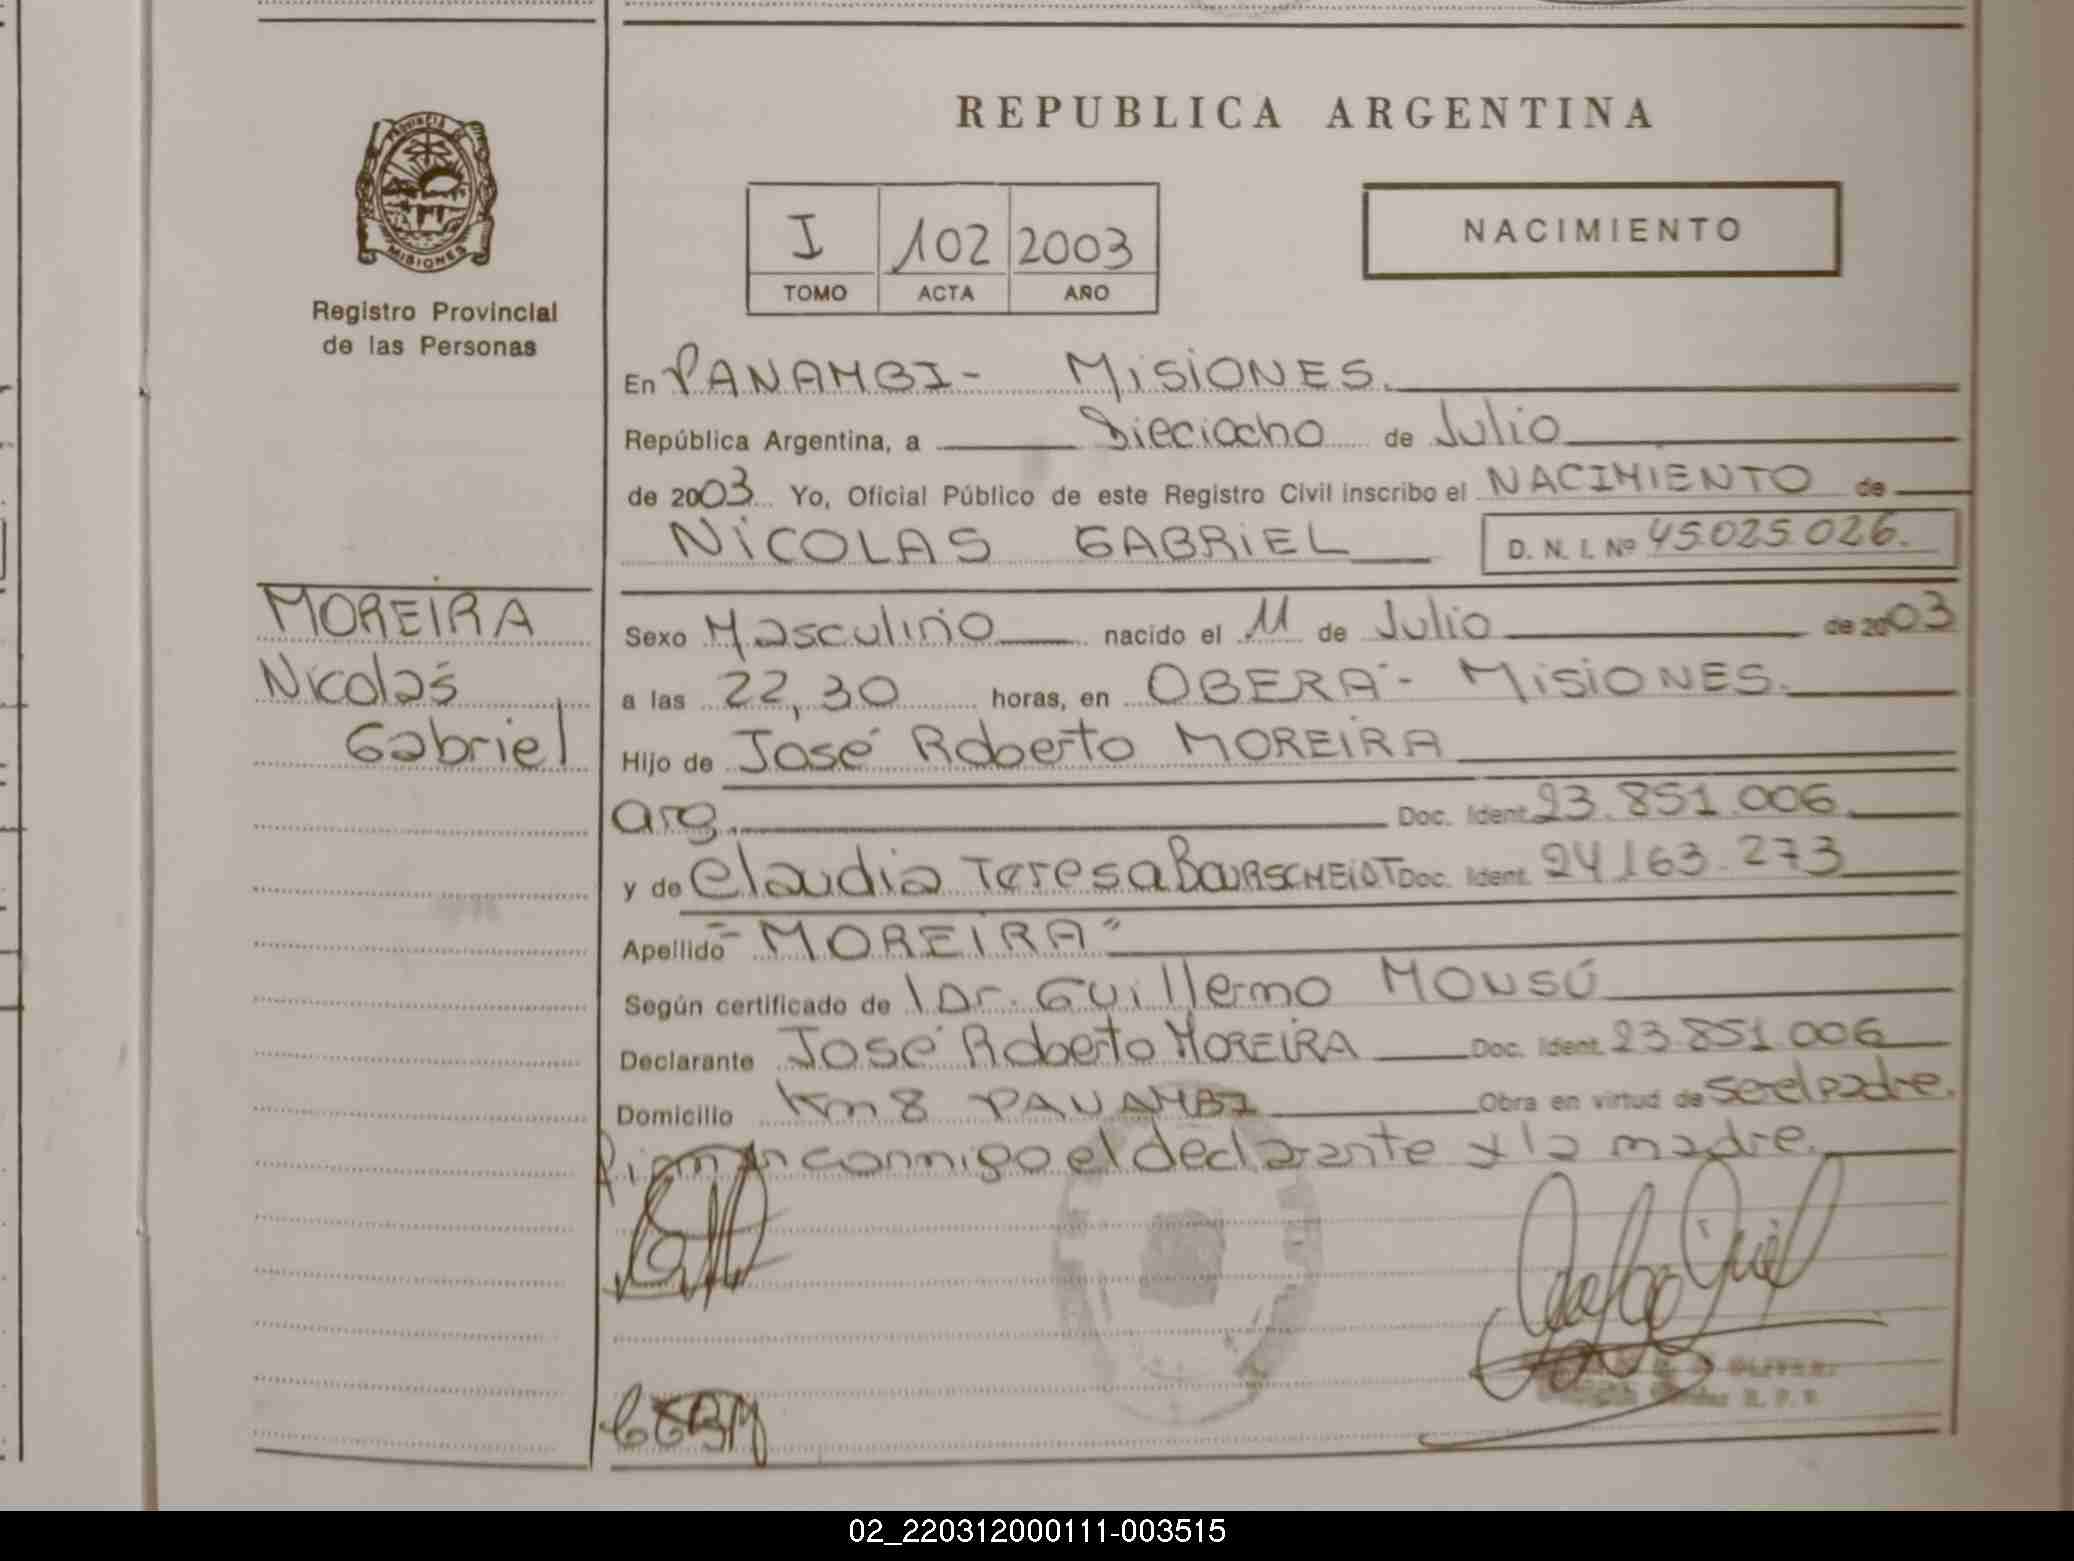 REPUBLICA ARGENTINA
PROVINCIA DE
MISIONES
Registro Provincial
de las Personas
I 102 2003
TOMO ACTA AÑO
NACIMIENTO
En PANAMBI- MISIONES.
República Argentina, a Dieciocho de Julio
de 2003 Yo, Oficial Público de este Registro Civil inscribo el NACIMIENTO de
NICOLAS GABRIEL D. N. I. Nº 45.025.026.
MOREIRA
Nicolás
Gabriel
Sexo Masculino nacido el 11 de Julio de 2003
a las 22,30 horas, en OBERÁ - MISIONES.
Hijo de José Roberto MOREIRA
arg. Doc. Ident. 23.851.006
y de Claudia Teresa BOURSCHEIDT Doc. Ident. 24.163.273
Apellido "MOREIRA"
Según certificado de Dr. Guillermo MOUSÚ
Declarante José Roberto MOREIRA Doc. Ident. 23.851.006
Domicilio Km 8 PANAMBI Obra en virtud de ser el padre.
Firman conmigo el declarante y la madre.
02_220312000111-003515